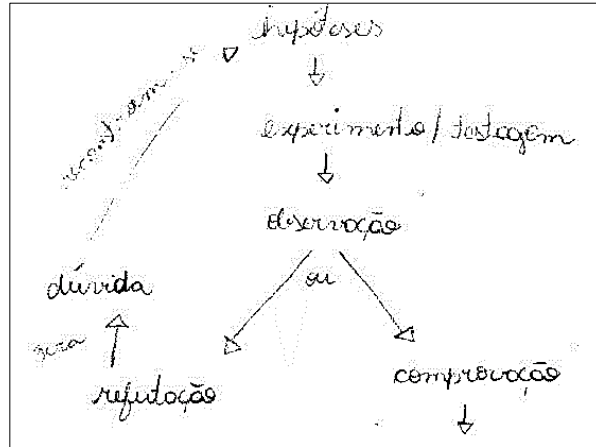 hipóteses
experimento / testagem
observação
ou
dúvida
gera
refutação
comprovação